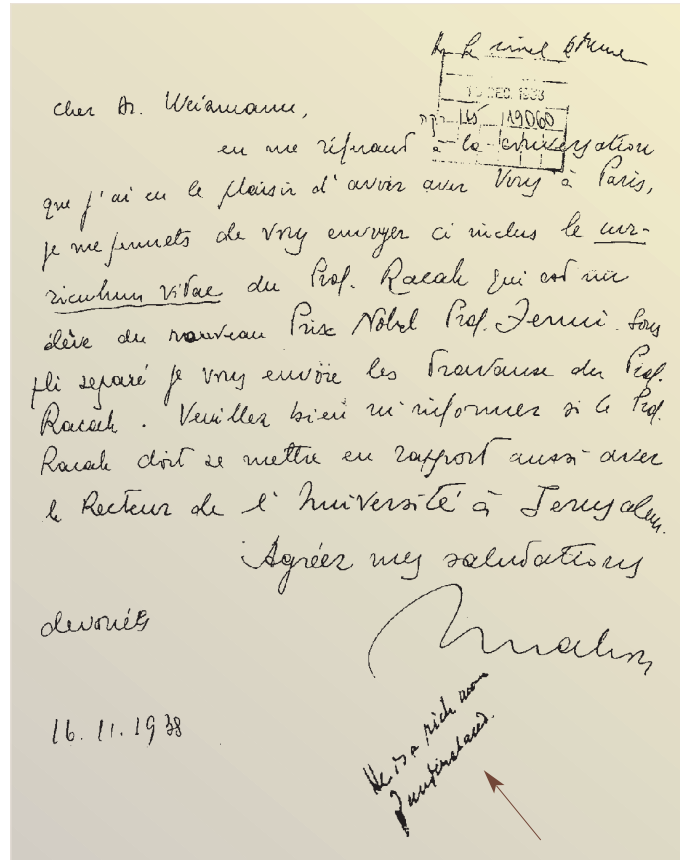 15 DEC. 1938
19060
cher Dr. Weizmann,
en me référant à la conversation
que j'ai eu le plaisir d'avoir avec Vous à Paris,
je me permets de vous envoyer ci inclus le cur-
riculum vitae du Prof. Racah qui est un
élève du nouveau Prix Nobel Prof. Fermi. Sous
pli separé je vous envoie les travaux du Prof.
Racah. Veuillez bien m'informer si le Prof.
Racah doit se mettre en rapport aussi avec
le Recteur de l'Université à Jerusalem.
Agréez mes salutations
devoués
16.11.1938
He is a rich man
I understand.